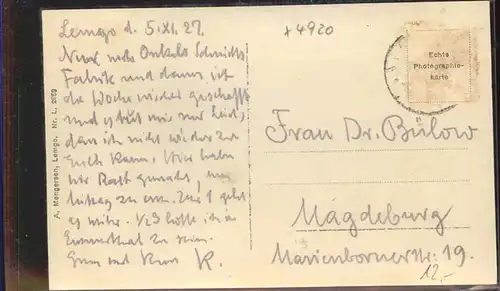 Lemgo d. 5.XI.27.
Nur noch Onkels Schmidts
Fabrik und dann ist
die Woche wieder geschafft
und es tut mir nur leid,
dass ich nicht wieder zu
Euch kann. Hier haben
wir Rast gemacht, um
Mittag zu essen. Um 1 geht
es weiter. 1/2 3 hoffe ich in
Emmerthal zu sein.
Gruss und Kuss K.
A. Mengersen, Lemgo. Nr. L.
+4920
Echte
Photographie-
karte
Frau Dr. Bülow
Magdeburg
Marienbornerstr. 19.
12,-